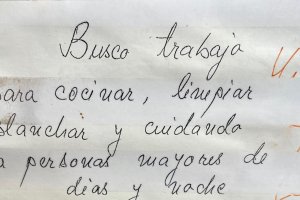 Busco trabajo
para cocinar, limpiar
planchar y cuidando
a personas mayores de
dias y noche